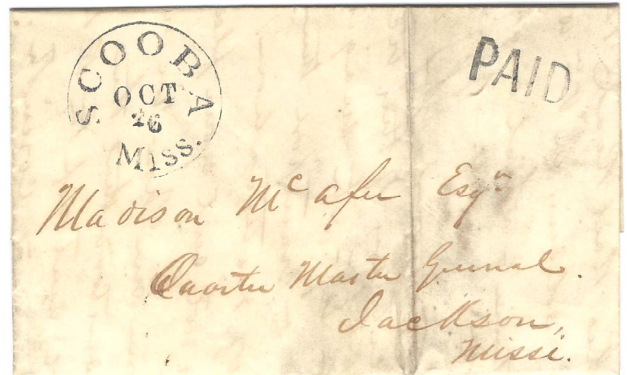 SCOOBA
OCT
26
MISS.
PAID
Madison McAfee Esqr.
Quarter Master General.
Jackson,
Missi.